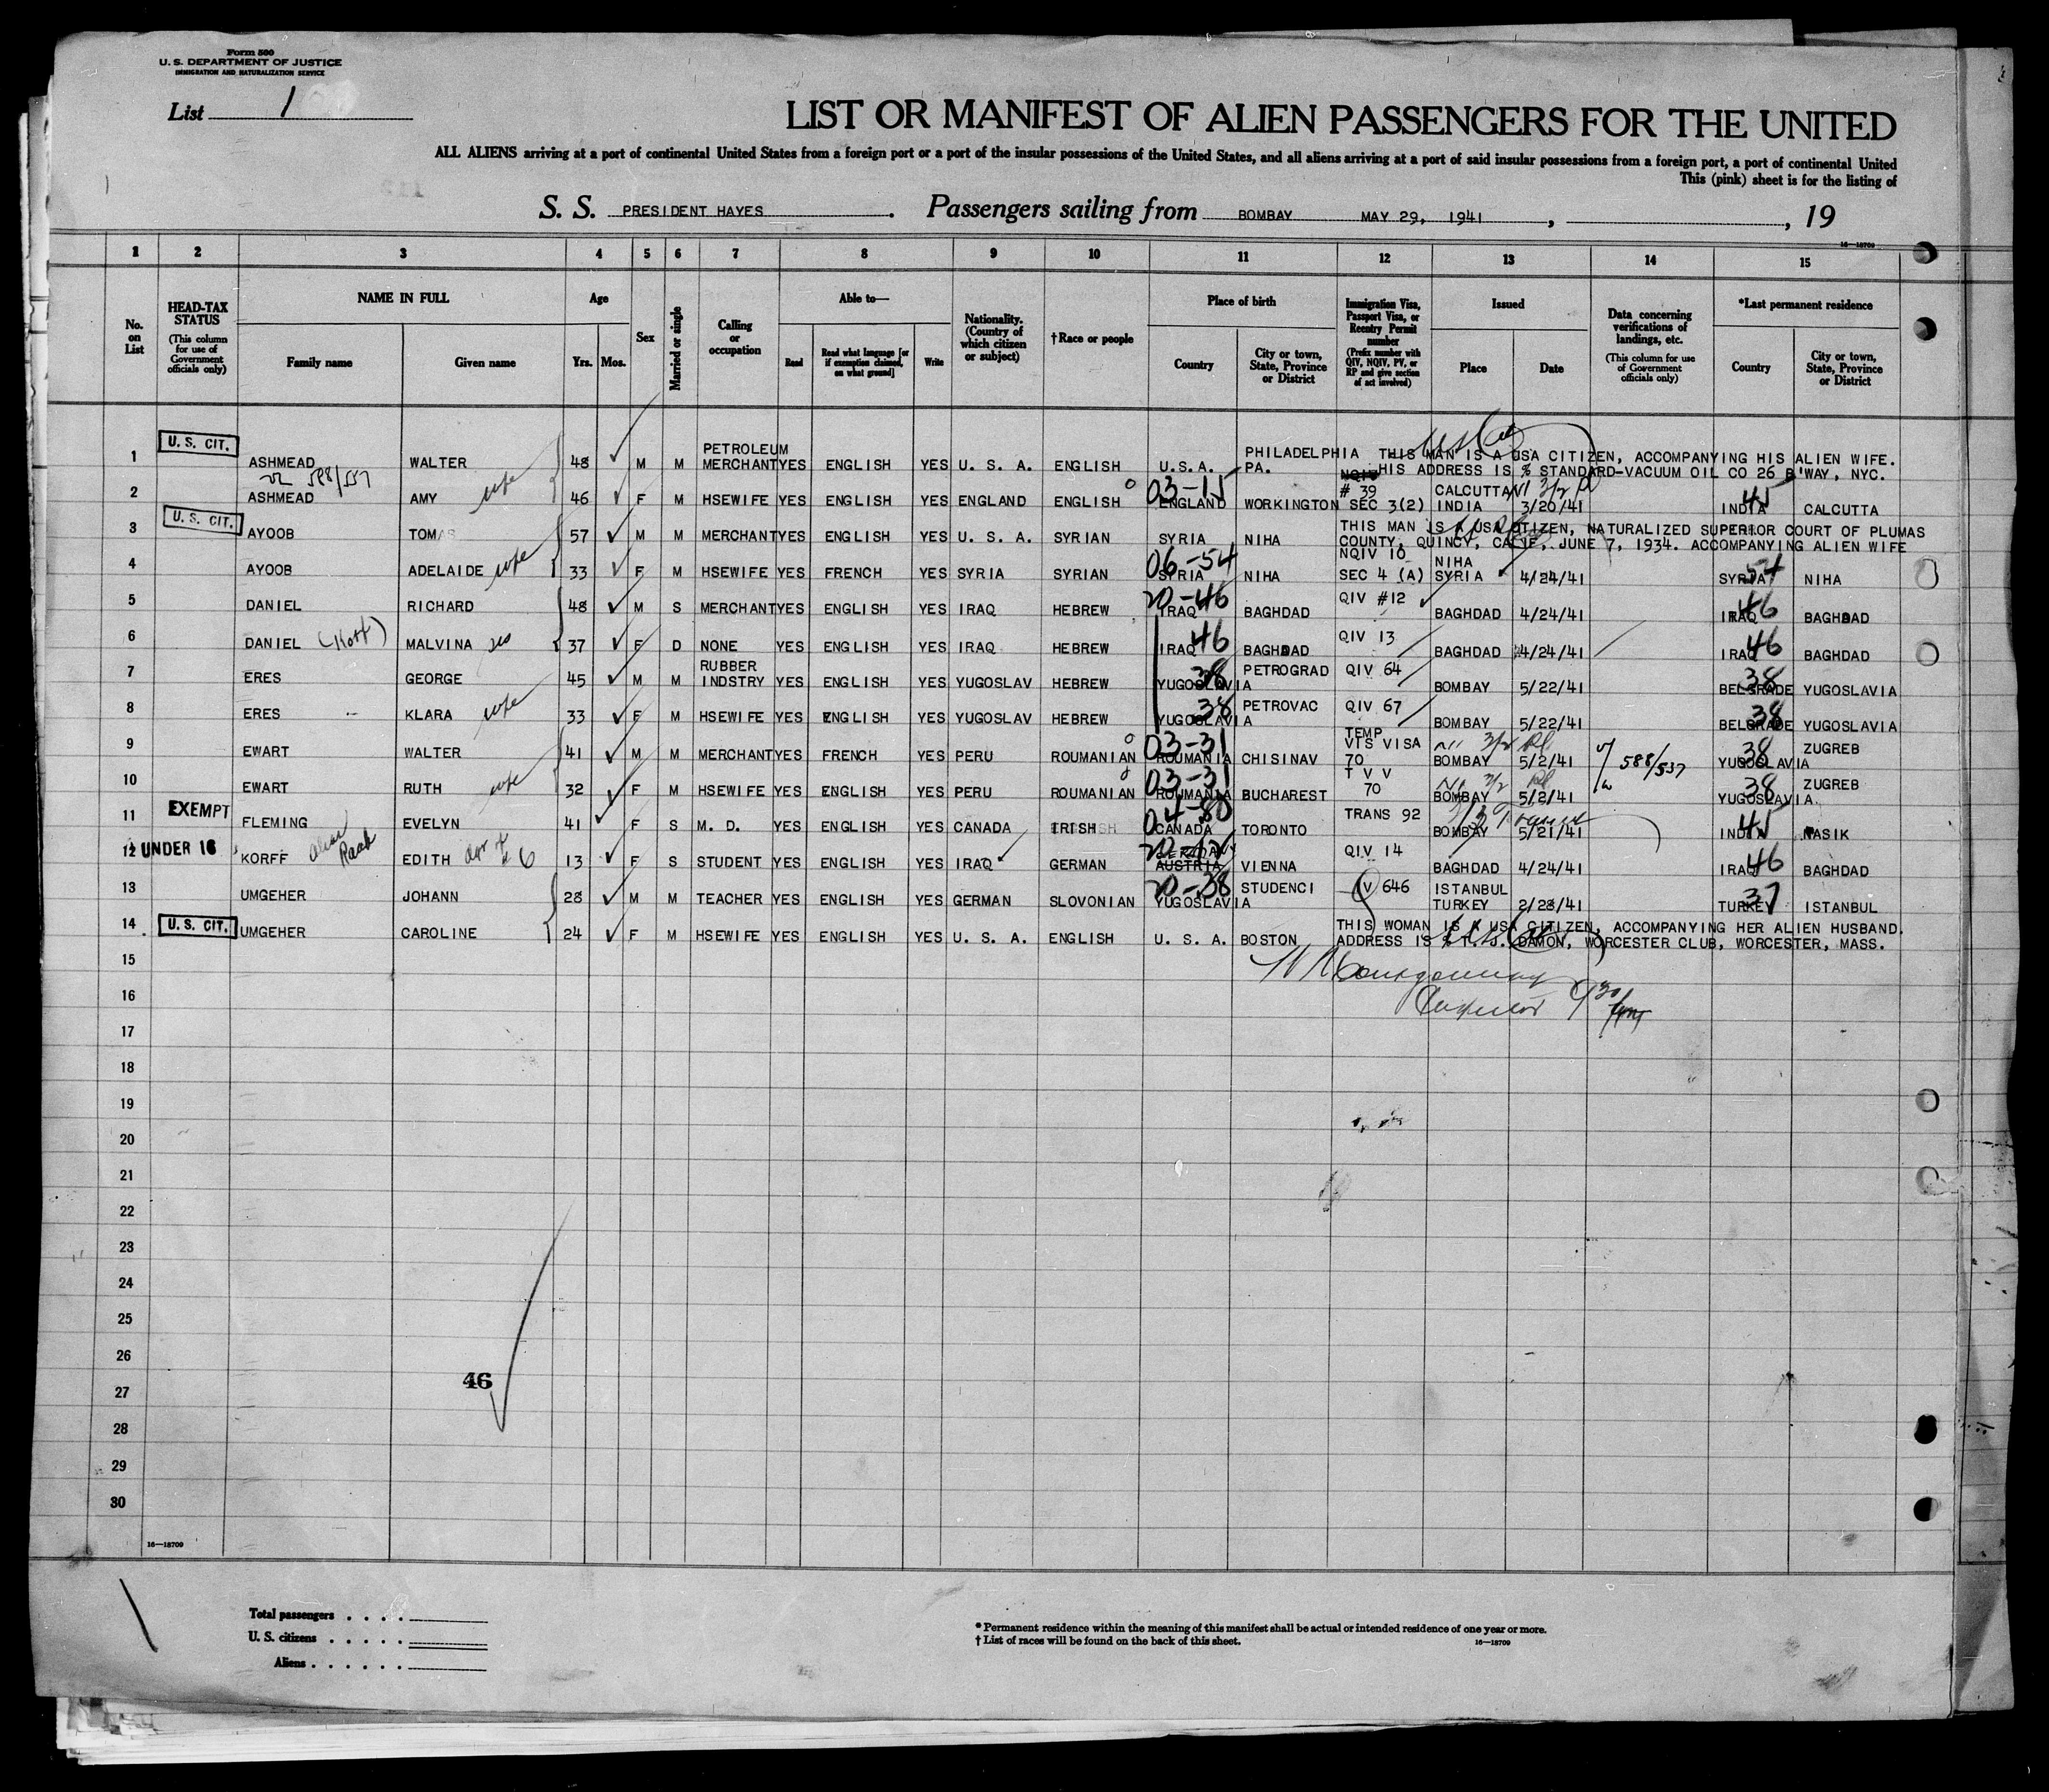 Form 500
U. S. DEPARTMENT OF JUSTICE
IMMIGRATION AND NATURALIZATION SERVICE
List 1
LIST OR MANIFEST OF ALIEN PASSENGERS FOR THE UNITED
ALL ALIENS arriving at a port of continental United States from a foreign port or a port of the insular possessions of the United States, and all aliens arriving at a port of said insular possessions from a foreign port, a port of continental United
This (pink) sheet is for the listing of
S. S. PRESIDENT HAYES . Passengers sailing from BOMBAY MAY 29, 1941 , , 19
16—18709
1 2 3 4 5 6 7 8 9 10 11 12 13 14 15
No. on List
HEAD-TAX STATUS (This column for use of Government officials only)
NAME IN FULL Family name Given name
Age Yrs. Mos.
Sex
Married or single
Calling or occupation
Able to— Read Read what language [or if exemption claimed, on what ground] Write
Nationality. (Country of which citizen or subject)
†Race or people
Place of birth Country City or town, State, Province or District
Immigration Visa, Passport Visa, or Reentry Permit number (Prefix number with QIV, NQIV, PV, or RP and give section of act involved)
Issued Place Date
Data concerning verifications of landings, etc. (This column for use of Government officials only)
*Last permanent residence Country City or town, State, Province or District
1 U. S. CIT. ASHMEAD WALTER 48 M M PETROLEUM MERCHANT YES ENGLISH YES U. S. A. ENGLISH U.S.A. PHILADELPHIA PA. THIS MAN IS A USA CITIZEN, ACCOMPANYING HIS ALIEN WIFE.
HIS ADDRESS IS % STANDARD-VACUUM OIL CO 26 B'WAY, NYC.
588/537
2 ASHMEAD AMY wife 46 F M HSEWIFE YES ENGLISH YES ENGLAND ENGLISH 03-15 ENGLAND WORKINGTON NQIV # 39 SEC 3(2) CALCUTTA INDIA 3/20/41 INDIA 45 CALCUTTA
3 U. S. CIT. AYOOB TOMAS 57 M M MERCHANT YES ENGLISH YES U. S. A. SYRIAN SYRIA NIHA THIS MAN IS A USA CITIZEN, NATURALIZED SUPERIOR COURT OF PLUMAS
COUNTY, QUINCY, CALIF., JUNE 7, 1934. ACCOMPANYING ALIEN WIFE
4 AYOOB ADELAIDE wife 33 F M HSEWIFE YES FRENCH YES SYRIA SYRIAN 06-54 SYRIA NIHA NQIV 10 SEC 4 (A) NIHA SYRIA 4/24/41 SYRIA 54 NIHA
5 DANIEL RICHARD 48 M S MERCHANT YES ENGLISH YES IRAQ HEBREW 20-46 IRAQ BAGHDAD QIV #12 BAGHDAD 4/24/41 IRAQ 46 BAGHDAD
6 DANIEL MALVINA sis 37 F D NONE YES ENGLISH YES IRAQ HEBREW IRAQ 46 BAGHDAD QIV 13 BAGHDAD 4/24/41 IRAQ 46 BAGHDAD
7 ERES GEORGE 45 M M RUBBER INDSTRY YES ENGLISH YES YUGOSLAV HEBREW 38 YUGOSLAVIA PETROGRAD QIV 64 BOMBAY 5/22/41 38 BELGRADE YUGOSLAVIA
8 ERES KLARA wife 33 F M HSEWIFE YES ENGLISH YES YUGOSLAV HEBREW 38 YUGOSLAVIA PETROVAC QIV 67 BOMBAY 5/22/41 38 BELGRADE YUGOSLAVIA
9 EWART WALTER 41 M M MERCHANT YES FRENCH YES PERU ROUMANIAN 03-31 ROUMANIA CHISINAV TEMP VIS VISA 70 BOMBAY 5/2/41 588/537 38 YUGOSLAVIA ZUGREB
10 EWART RUTH wife 32 F M HSEWIFE YES ENGLISH YES PERU ROUMANIAN 03-31 ROUMANIA BUCHAREST T V V 70 BOMBAY 5/2/41 38 YUGOSLAVIA ZUGREB
11 EXEMPT FLEMING EVELYN 41 F S M. D. YES ENGLISH YES CANADA IRISH 04-80 CANADA TORONTO TRANS 92 BOMBAY 5/21/41 INDIA 45 NASIK
12 UNDER 16 KORFF alias Raab EDITH 13 F S STUDENT YES ENGLISH YES IRAQ GERMAN AUSTRIA VIENNA QIV 14 BAGHDAD 4/24/41 IRAQ 46 BAGHDAD
13 UMGEHER JOHANN 28 M M TEACHER YES ENGLISH YES GERMAN SLOVONIAN 20-38 YUGOSLAVIA STUDENCI QV 646 ISTANBUL TURKEY 2/28/41 TURKEY 37 ISTANBUL
14 U. S. CIT. UMGEHER CAROLINE 24 F M HSEWIFE YES ENGLISH YES U. S. A. ENGLISH U. S. A. BOSTON THIS WOMAN IS A USA CITIZEN, ACCOMPANYING HER ALIEN HUSBAND.
ADDRESS IS % DAMON, WORCESTER CLUB, WORCESTER, MASS.
15
Montgomery
16
Inspector
17
18
19
20
21
22
23
24
25
26
46
27
28
29
30
16—18709
Total passengers
U. S. citizens
Aliens
* Permanent residence within the meaning of this manifest shall be actual or intended residence of one year or more.
† List of races will be found on the back of this sheet.
16—18709